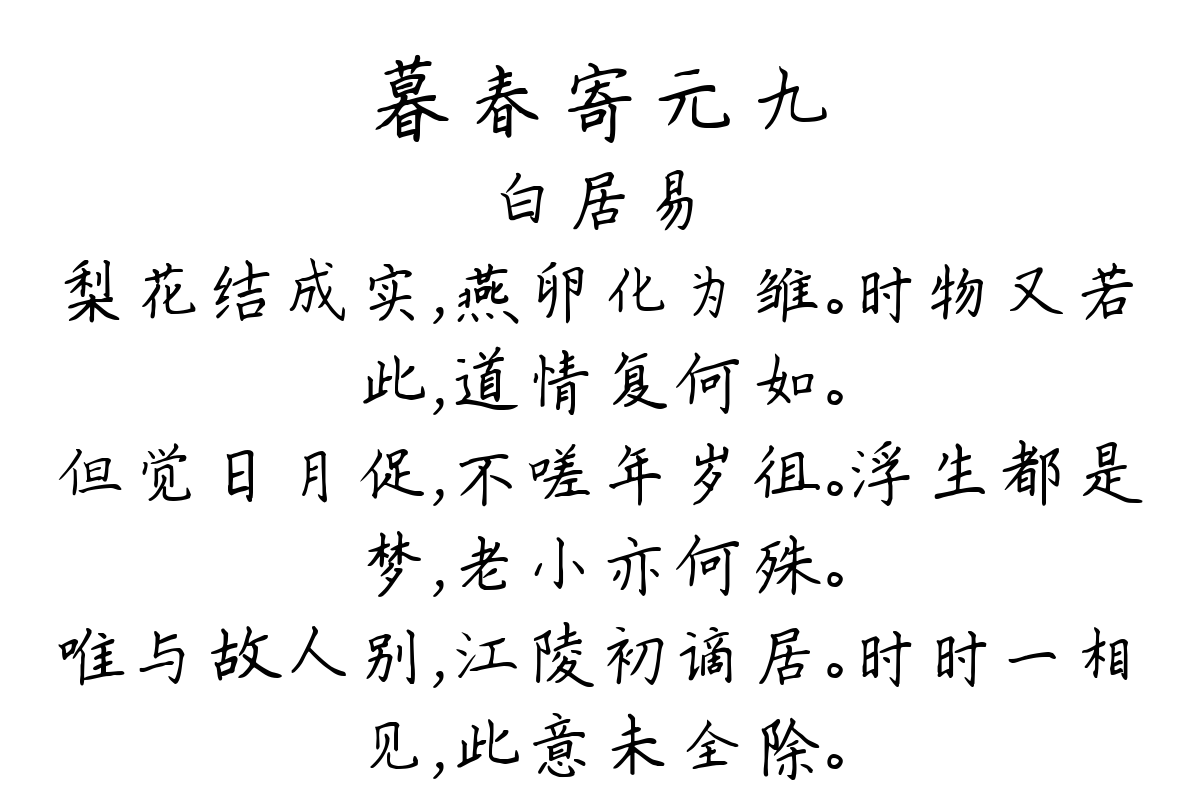 暮春寄元九
白居易
梨花结成实,燕卵化为雏。时物又若
此,道情复何如。
但觉日月促,不嗟年岁徂。浮生都是
梦,老小亦何殊。
唯与故人别,江陵初谪居。时时一相
见,此意未全除。